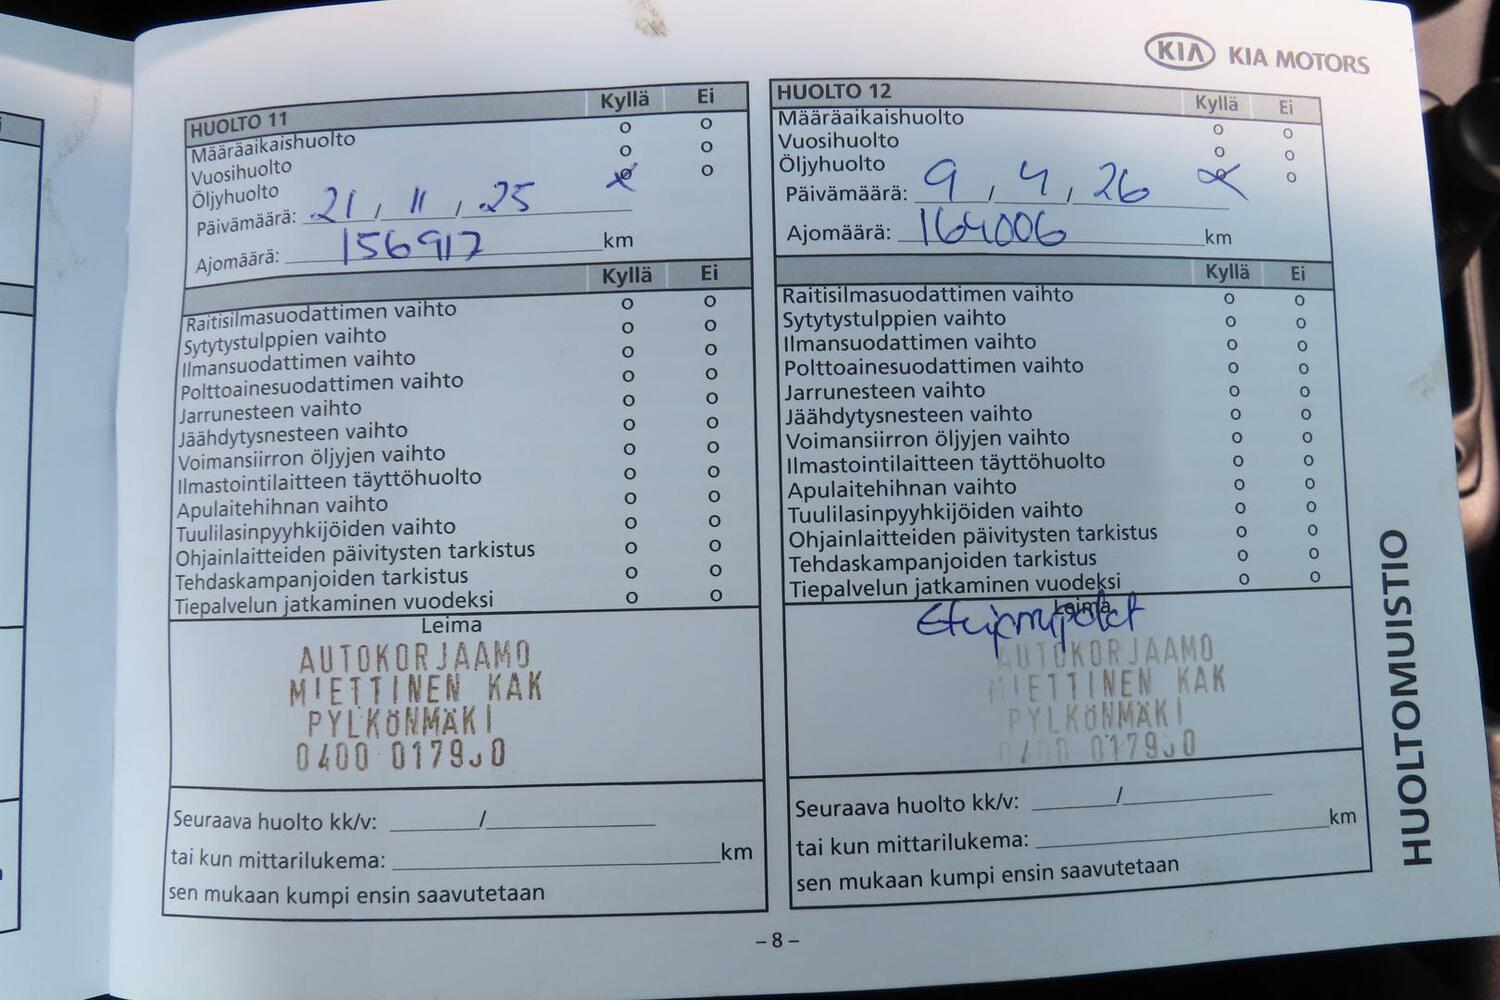 KIA KIA MOTORS
HUOLTO 11 Kyllä Ei
Määräaikaishuolto o o
Vuosihuolto o o
Öljyhuolto x o
Päivämäärä: 21 / 11 / 25
Ajomäärä: 156917 km
Kyllä Ei
Raitisilmasuodattimen vaihto o o
Sytytystulppien vaihto o o
Ilmansuodattimen vaihto o o
Polttoainesuodattimen vaihto o o
Jarrunesteen vaihto o o
Jäähdytysnesteen vaihto o o
Voimansiirron öljyjen vaihto o o
Ilmastointilaitteen täyttöhuolto o o
Apulaitehihnan vaihto o o
Tuulilasinpyyhkijöiden vaihto o o
Ohjainlaitteiden päivitysten tarkistus o o
Tehdaskampanjoiden tarkistus o o
Tiepalvelun jatkaminen vuodeksi o o
Leima
AUTOKORJAAMO
MIETTINEN KAK
PYLKÖNMÄKI
0400 017930
Seuraava huolto kk/v: /
tai kun mittarilukema: km
sen mukaan kumpi ensin saavutetaan
HUOLTO 12 Kyllä Ei
Määräaikaishuolto o o
Vuosihuolto o o
Öljyhuolto x o
Päivämäärä: 9 / 4 / 26
Ajomäärä: 164006 km
Kyllä Ei
Raitisilmasuodattimen vaihto o o
Sytytystulppien vaihto o o
Ilmansuodattimen vaihto o o
Polttoainesuodattimen vaihto o o
Jarrunesteen vaihto o o
Jäähdytysnesteen vaihto o o
Voimansiirron öljyjen vaihto o o
Ilmastointilaitteen täyttöhuolto o o
Apulaitehihnan vaihto o o
Tuulilasinpyyhkijöiden vaihto o o
Ohjainlaitteiden päivitysten tarkistus o o
Tehdaskampanjoiden tarkistus o o
Tiepalvelun jatkaminen vuodeksi o o
Leima
AUTOKORJAAMO
MIETTINEN KAK
PYLKÖNMÄKI
0400 017930
Seuraava huolto kk/v: /
tai kun mittarilukema: km
sen mukaan kumpi ensin saavutetaan
HUOLTOMUISTIO
– 8 –